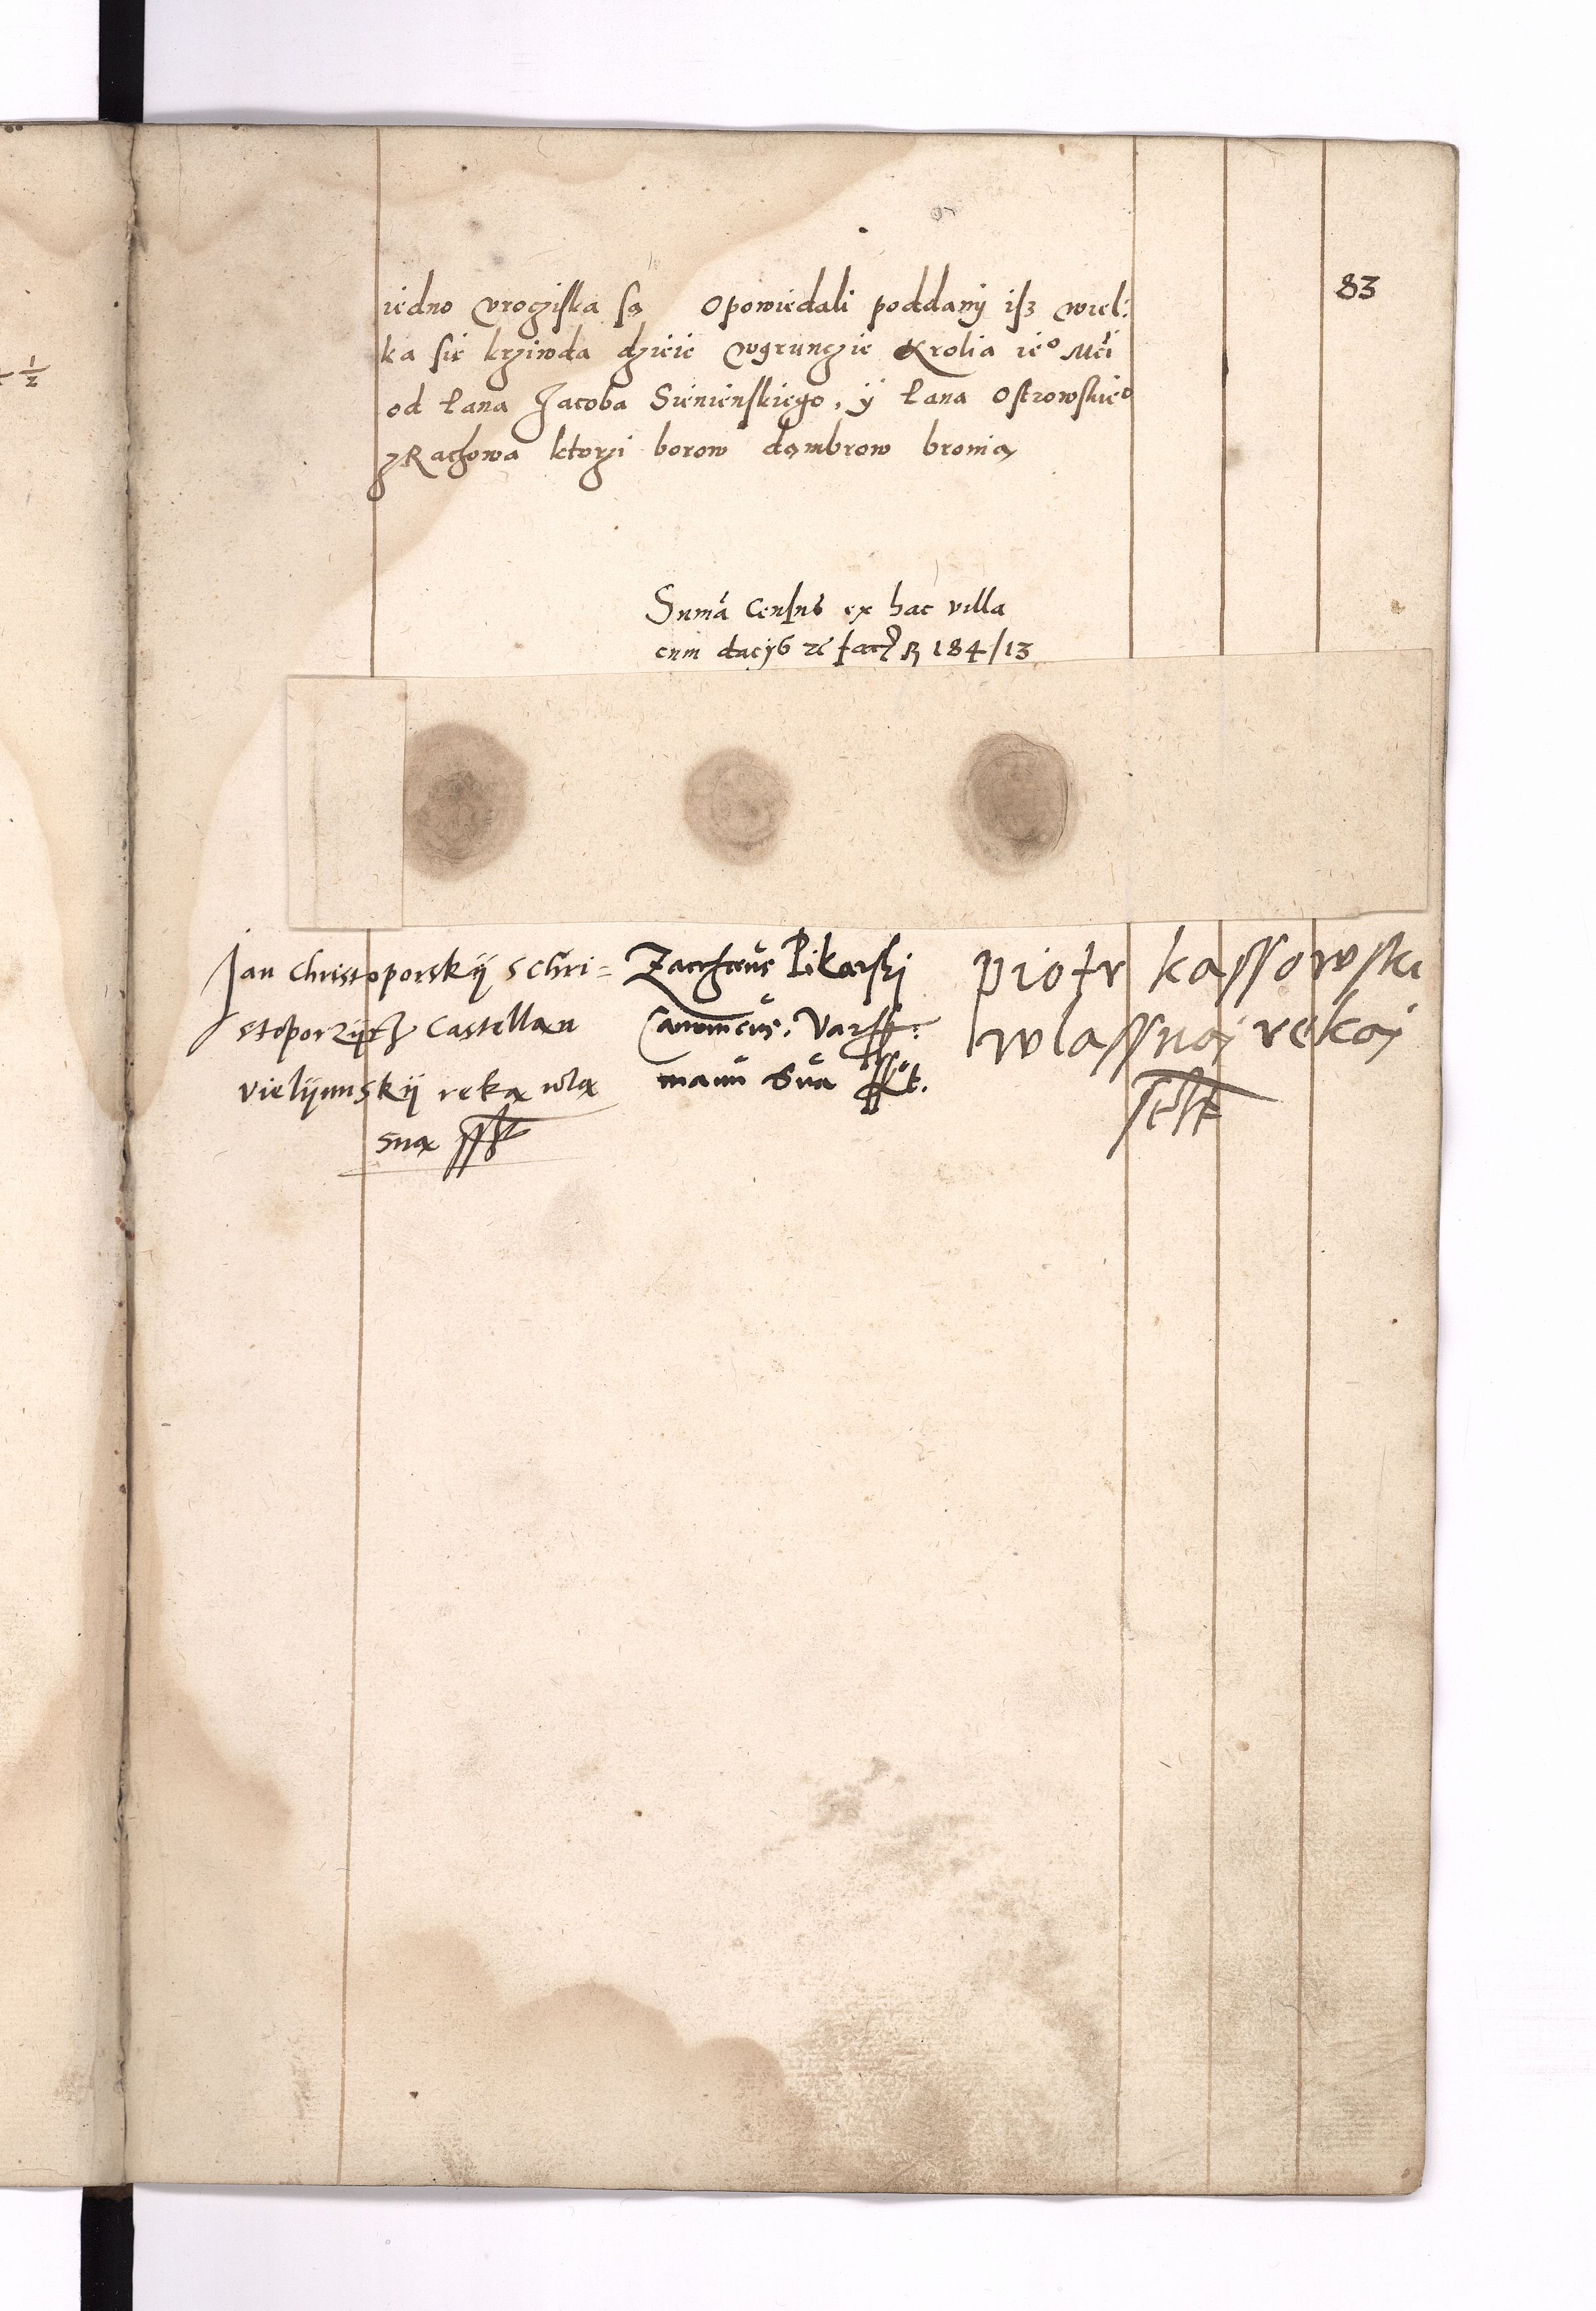 83
iedno vrocziska są Opowiedali poddany isz wiel:
ka sie krziwda dzieie wgrunczie Krolia ie° Mći
od łana Jacoba Sienienskiego, ÿ łana Ostrowskie°
z Rachowa ktorzi borow dąmbrow bronią
Suma Census ex hac villa
cum dacÿs 184/13
Jan Christoporskÿ s Chri=
stoporzÿcz Castellan
vielÿunskÿ reką wła
sną
Zacheus Pikarski
Canonicus. Vars:
manu sua sst.
Piotr kassowski
wlassną reką
½